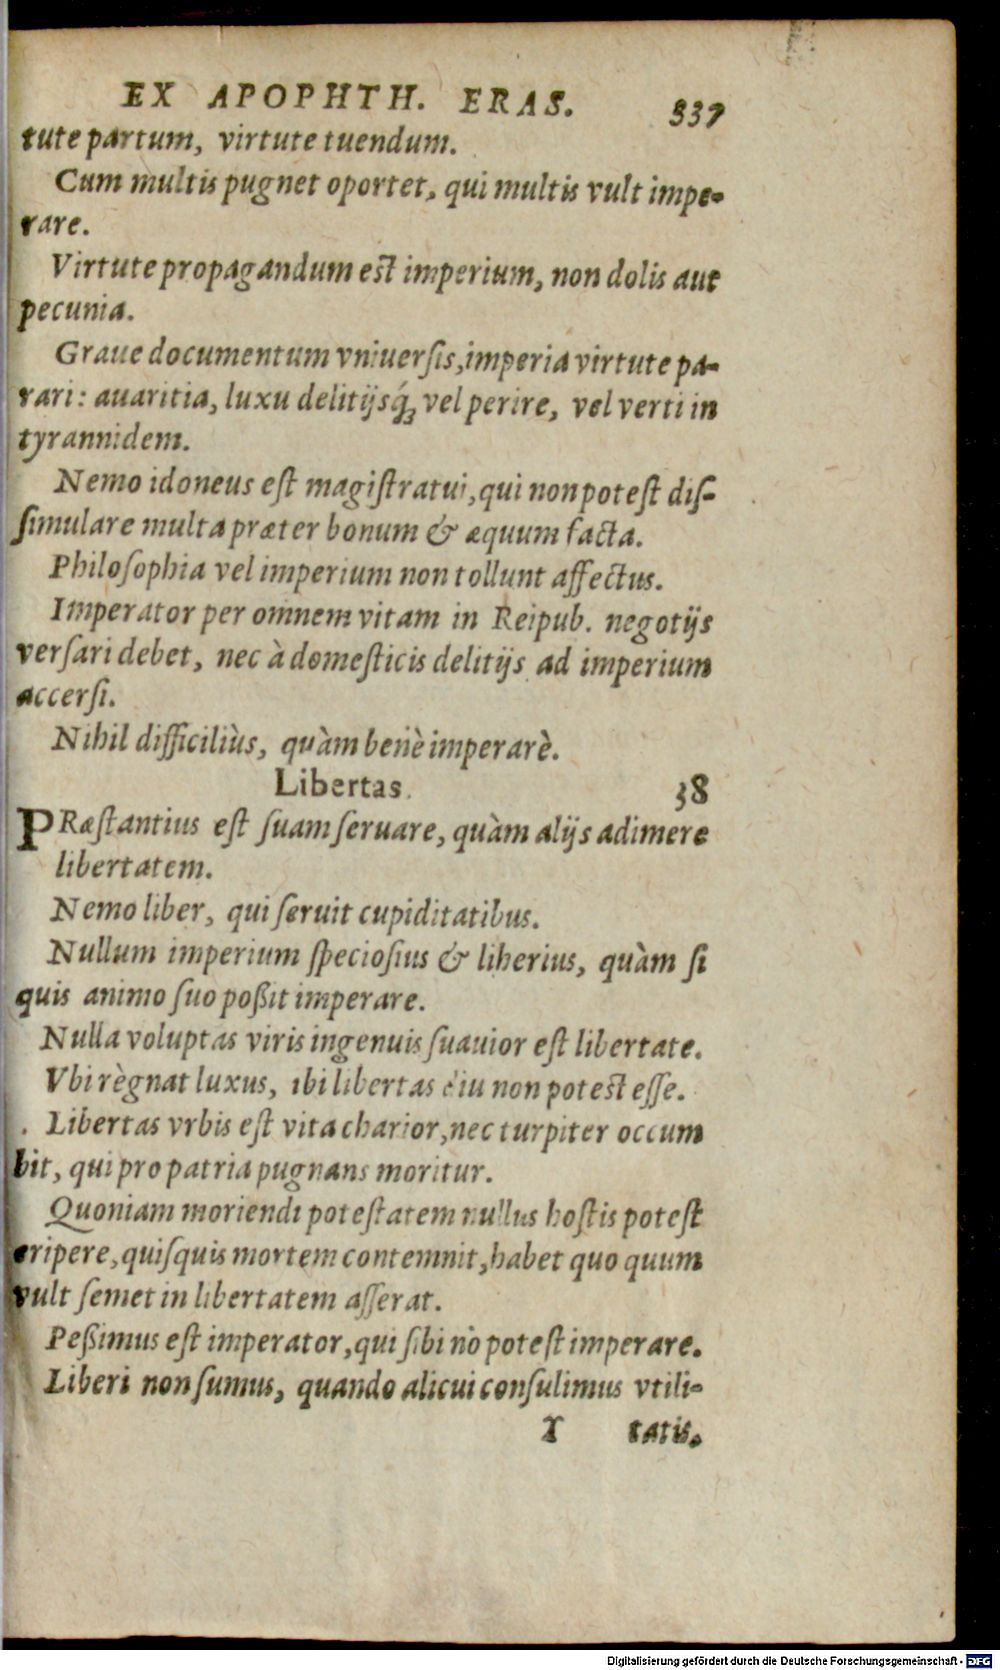 EX APOPHTH. ERAS. 337
tute partum, virtute tuendum.
Cum multis pugnet oportet, qui multis vult impe-
rare.
Virtute propagandum est imperium, non dolis aut
pecunia.
Graue documentum vniuersis, imperia virtute pa-
rari: auaritia, luxu delitijsq́ꝫ vel perire, vel verti in
tyrannidem.
Nemo idoneus est magistratui, qui non potest dis-
simulare multa præter bonum & æquum facta.
Philosophia vel imperium non tollunt affectus.
Imperator per omnem vitam in Reipub. negotijs
versari debet, nec à domesticis delitijs ad imperium
accersi.
Nihil difficiliùs, quàm benè imperarè.
Libertas. 38
PRæstantius est suam seruare, quàm alijs adimere
libertatem.
Nemo liber, qui seruit cupiditatibus.
Nullum imperium speciosius & liberius, quàm si
quis animo suo poßit imperare.
Nulla voluptas viris ingenuis suauior est libertate.
Vbi règnat luxus, ibi libertas diu non potest esse.
Libertas vrbis est vita charior, nec turpiter occum
bit, qui pro patria pugnans moritur.
Quoniam moriendi potestatem nullus hostis potest
eripere, quisquis mortem contemnit, habet quo quum
vult semet in libertatem asserat.
Peßimus est imperator, qui sibi nõ potest imperare.
Liberi non sumus, quando alicui consulimus vtili-
Y tatis.
Digitalisierung gefördert durch die Deutsche Forschungsgemeinschaft - DFG